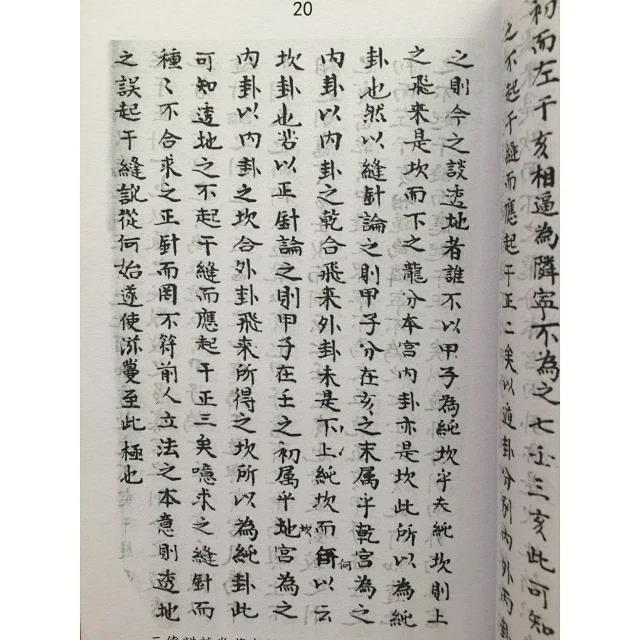 初而左于亥相逼為隣寧不為之七壬三亥此可知
之不起于縫而應起于正二矣以這卦分列內外兩卦
20
之則今之談透地者誰不以甲子為純坎乎夫純坎則上
之飛来是坎而下之龍分本宮內卦亦是坎此所以為純
卦也然以縫針論之則甲子分在亥之末属乎乾宮為之
內卦以內卦之乾合飛来外卦未是不上純坎而何以云
坎卦也若以正針論之則甲子在壬之初属乎地坎宮為之
內卦以內卦之坎合外卦飛来所得之坎所以為純卦此
可知透地之不起于縫而應起于正三矣噫求之縫針而
種〻不合求之正針而罔不符前人立法之本意則透地
之誤起于縫說從何始遂使滋蔓至此極也